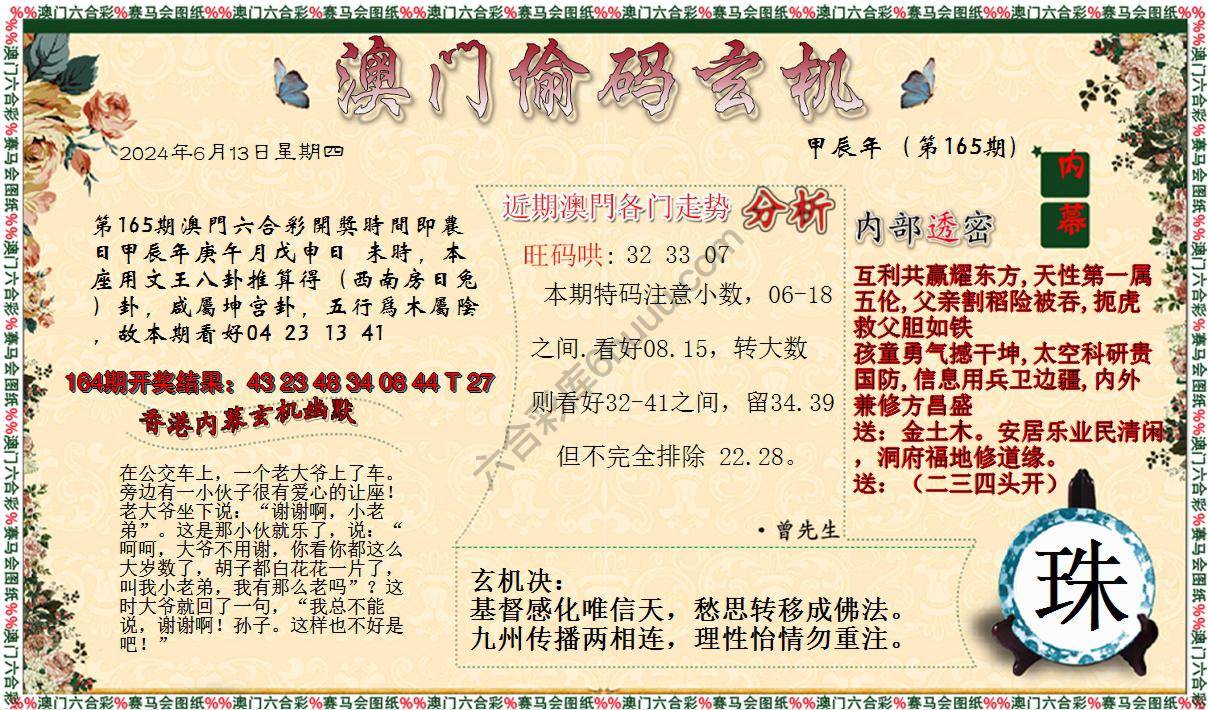 %%澳门六合彩%赛马会图纸%%澳门六合彩%赛马会图纸%%澳门六合彩%赛马会图纸%%澳门六合彩%赛马会图纸%%澳门六合彩%赛马会图纸%%澳门六合彩%赛马会图纸%%
澳门偷码玄机
2024年6月13日星期四
甲辰年（第165期）
内幕
第165期澳門六合彩開獎時間即農
日甲辰年庚午月戊申日 未時，本
座用文王八卦推算得（西南房日兔
）卦，咸屬坤宫卦，五行爲木屬陰
，故本期看好04 23 13 41
164期开奖结果：43 23 48 34 08 44 T 27
香港内幕玄机幽默
在公交车上，一个老大爷上了车。
旁边有一小伙子很有爱心的让座！
老大爷坐下说：“谢谢啊，小老
弟”。这是那小伙就乐了，说：“
呵呵，大爷不用谢，你看你都这么
大岁数了，胡子都白花花一片了，
叫我小老弟，我有那么老吗”？这
时大爷就回了一句，“我总不能
说，谢谢啊！孙子。这样也不好是
吧！”
近期澳門各门走势 分析
旺码哄: 32 33 07
本期特码注意小数，06-18
之间.看好08.15，转大数
则看好32-41之间，留34.39
但不完全排除 22.28。
·曾先生
内部透密
互利共赢耀东方,天性第一属
五伦,父亲割稻险被吞,扼虎
救父胆如铁
孩童勇气撼干坤,太空科研贵
国防,信息用兵卫边疆,内外
兼修方昌盛
送：金土木。安居乐业民清闲
，洞府福地修道缘。
送：（二三四头开）
玄机决：
基督感化唯信天，愁思转移成佛法。
九州传播两相连，理性怡情勿重注。
珠
%%澳门六合彩%赛马会图纸%%澳门六合彩%赛马会图纸%%澳门六合彩%赛马会图纸%%澳门六合彩%赛马会图纸%%澳门六合彩%赛马会图纸%%澳门六合彩%赛马会图纸%%